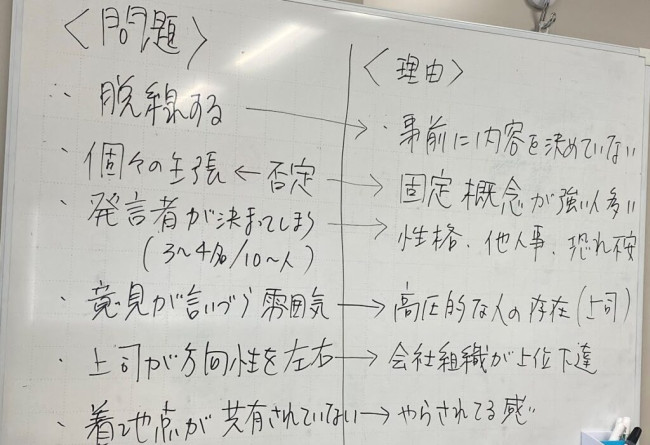 〈問題〉
・脱線する
・個々の主張 ← 否定
・発言者が決まってしまう
(3〜4名/10〜人)
・意見が言いづらい雰囲気
・上司が方向性を左右
・着地点が共有されていない
〈理由〉
→ ・事前に内容を決めていない
→ 固定概念が強い人多い
→ 性格、他人事、恐れ不安
→ 高圧的な人の存在(上司)
→ 会社組織が上位下達
→ やらされてる感